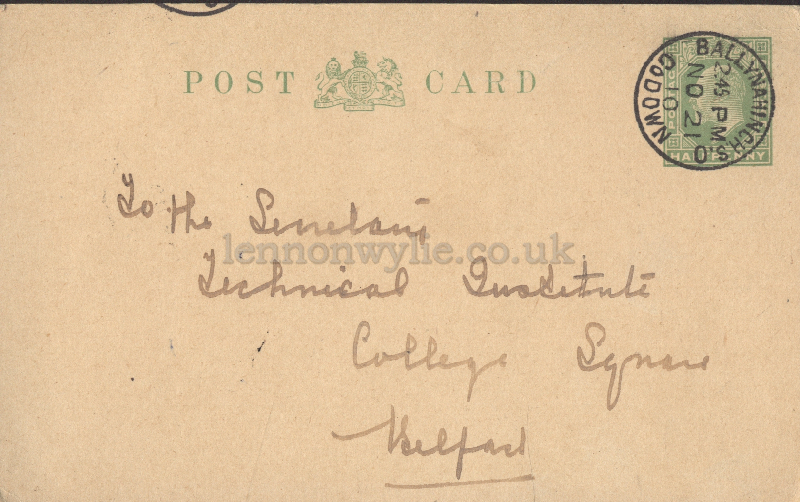 POST CARD
BALLYNAHINCH S.O
CO DOWN
2 45 PM
NO 21
10
HALFPENNY
To the Secretary
lennonwylie.co.uk
Technical Institute
College Square
Belfast